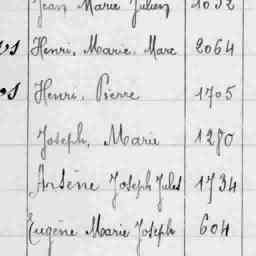 Jean Marie Julien 1052
Henri, Marie, Marc 2064
Henri, Pierre 1705
Joseph, Marie 1280
Arsène Joseph Jules 1734
Eugène Marie Joseph 604